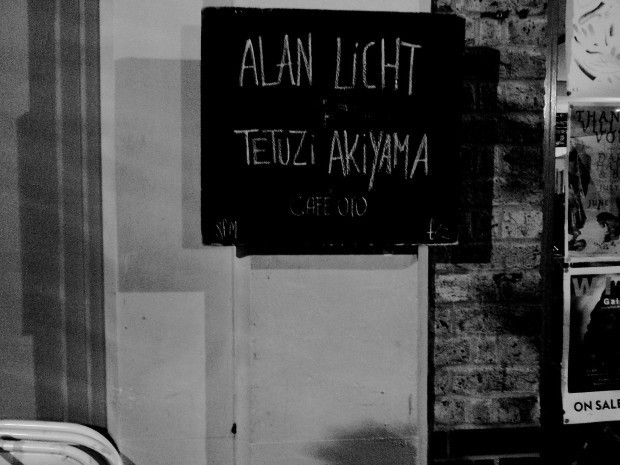 ALAN LiCHT
TETUZi AKiYAMA
CAFE OTO
8PM
THAN
VO
JUNE
W
Gai
ON SALE